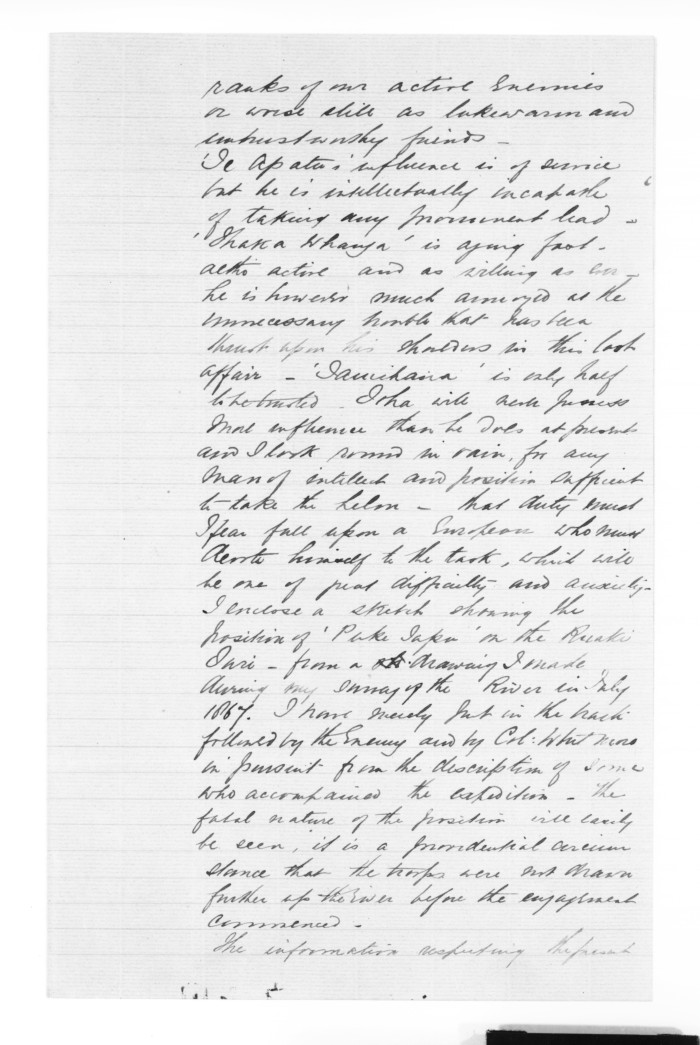 ranks of our active Enemies
or worse still as lukewarm and
untrustworthy friends -
'Te Apatu's' influence is of service
but he is intellectually incapable
of taking any prominent lead -
'Ihaka Whanga' is aging fast -
altho active and as willing as ever -
he is however much annoyed at the
unnecessary trouble that has been
thrust upon his shoulders in this last
affair - 'Tamihana' is only half
to be trusted - Toha will never possess
more influence than he does at present
and I look round in vain, for any
man of intellect and position sufficient
to take the helm - that duty must
I fear fall upon a European who must
devote himself to the task, which will
be one of great difficulty and anxiety -
I enclose a sketch showing the
position of 'Puke Tapu' on the Ruaki
Turi - from a drawing I made
during my survey of the River in July
1867. I have merely put in the track
followed by the Enemy and by Col: Whitmore
in pursuit from the description of some
who accompanied the expedition - The
fatal nature of the position will easily
be seen, it is a providential circum
stance that the troops were not drawn
further up the River before the engagement
commenced -
The information respecting the present